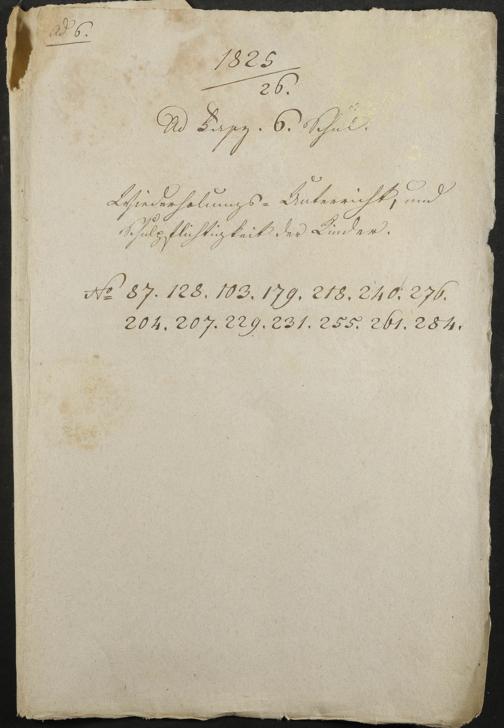 ad 6.
1825
26.
Ad Fasz. 6. Schul.
Wiederholungs- Unterricht, und
Schulpflichtigkeit der Kinder.
No 87. 128. 103. 179. 218. 240. 276.
204. 207. 229. 231. 255. 261. 284.